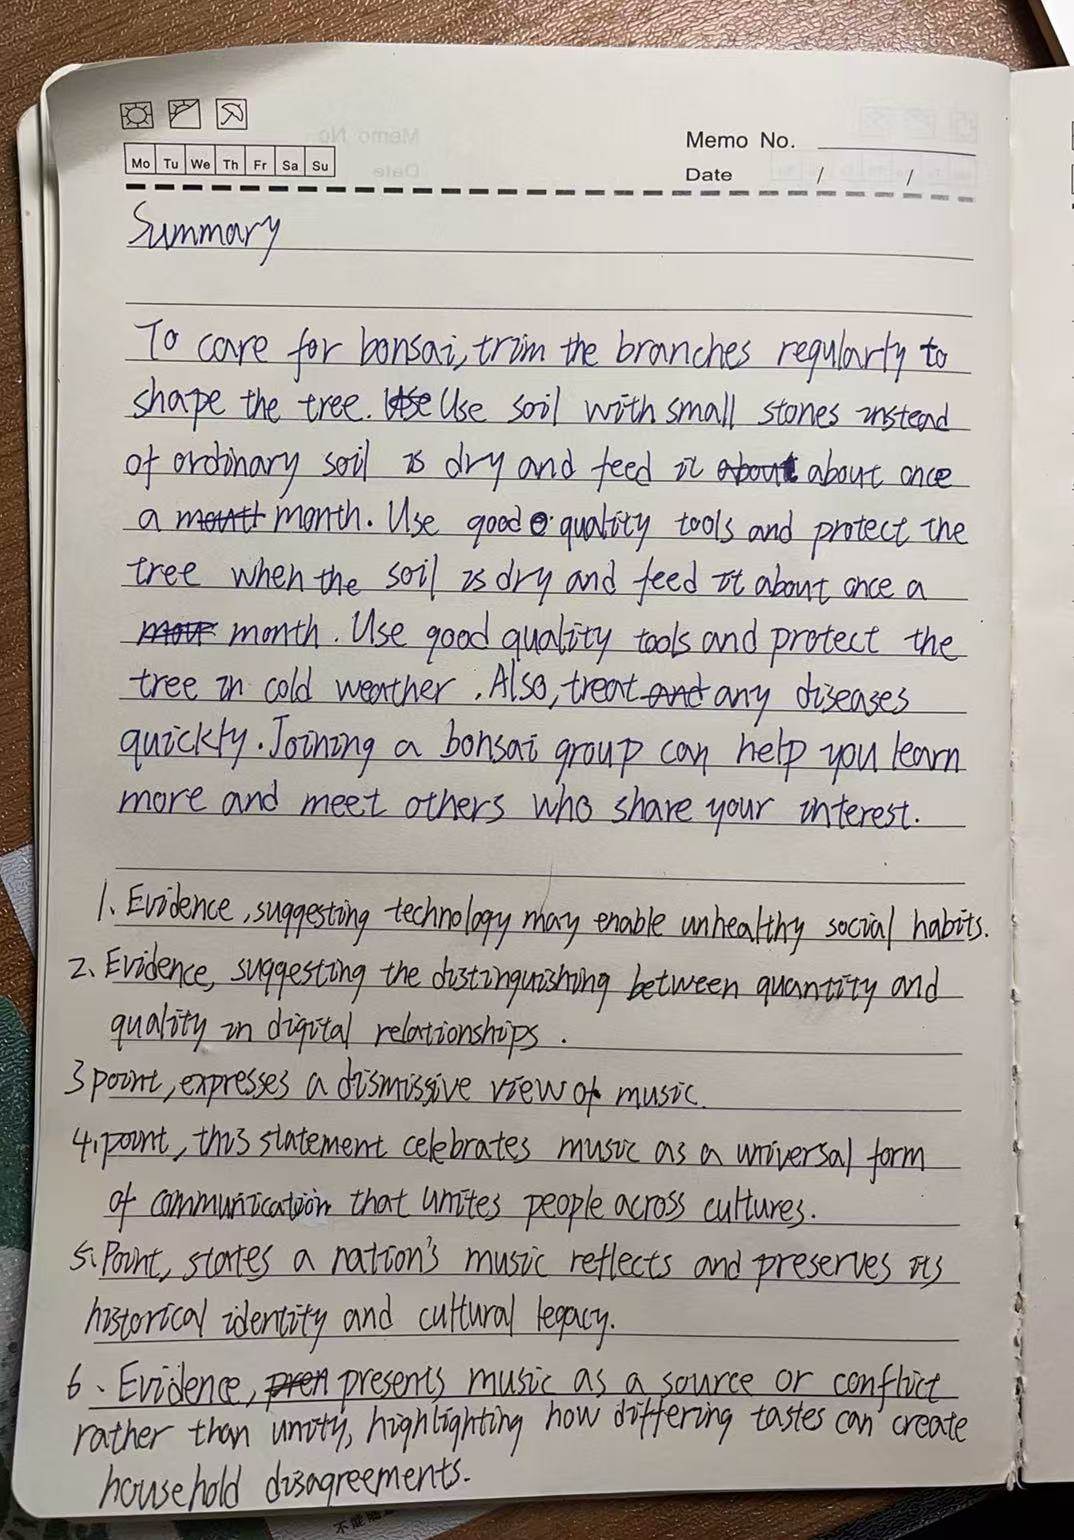 Mo Tu We Th Fr Sa Su
Memo No.
Date / /
Summary
To care for bonsai, trim the branches regularly to
shape the tree. Use Use soil with small stones instead
of ordinary soil is dry and feed it about about once
a month. Use good quality tools and protect the
tree when the soil is dry and feed it about once a
month. Use good quality tools and protect the
tree in cold weather. Also, treat and any diseases
quickly. Joining a bonsai group can help you learn
more and meet others who share your interest.
1. Evidence, suggesting technology may enable unhealthy social habits.
2. Evidence, suggesting the distinguishing between quantity and
quality in digital relationships.
3 point, expresses a dismissive view of music.
4. point, this statement celebrates music as a universal form
of communication that unites people across cultures.
5. Point, states a nation's music reflects and preserves its
historical identity and cultural legacy.
6、Evidence, pren presents music as a source or conflict
rather than unity, highlighting how differing tastes can create
household disagreements.
不能